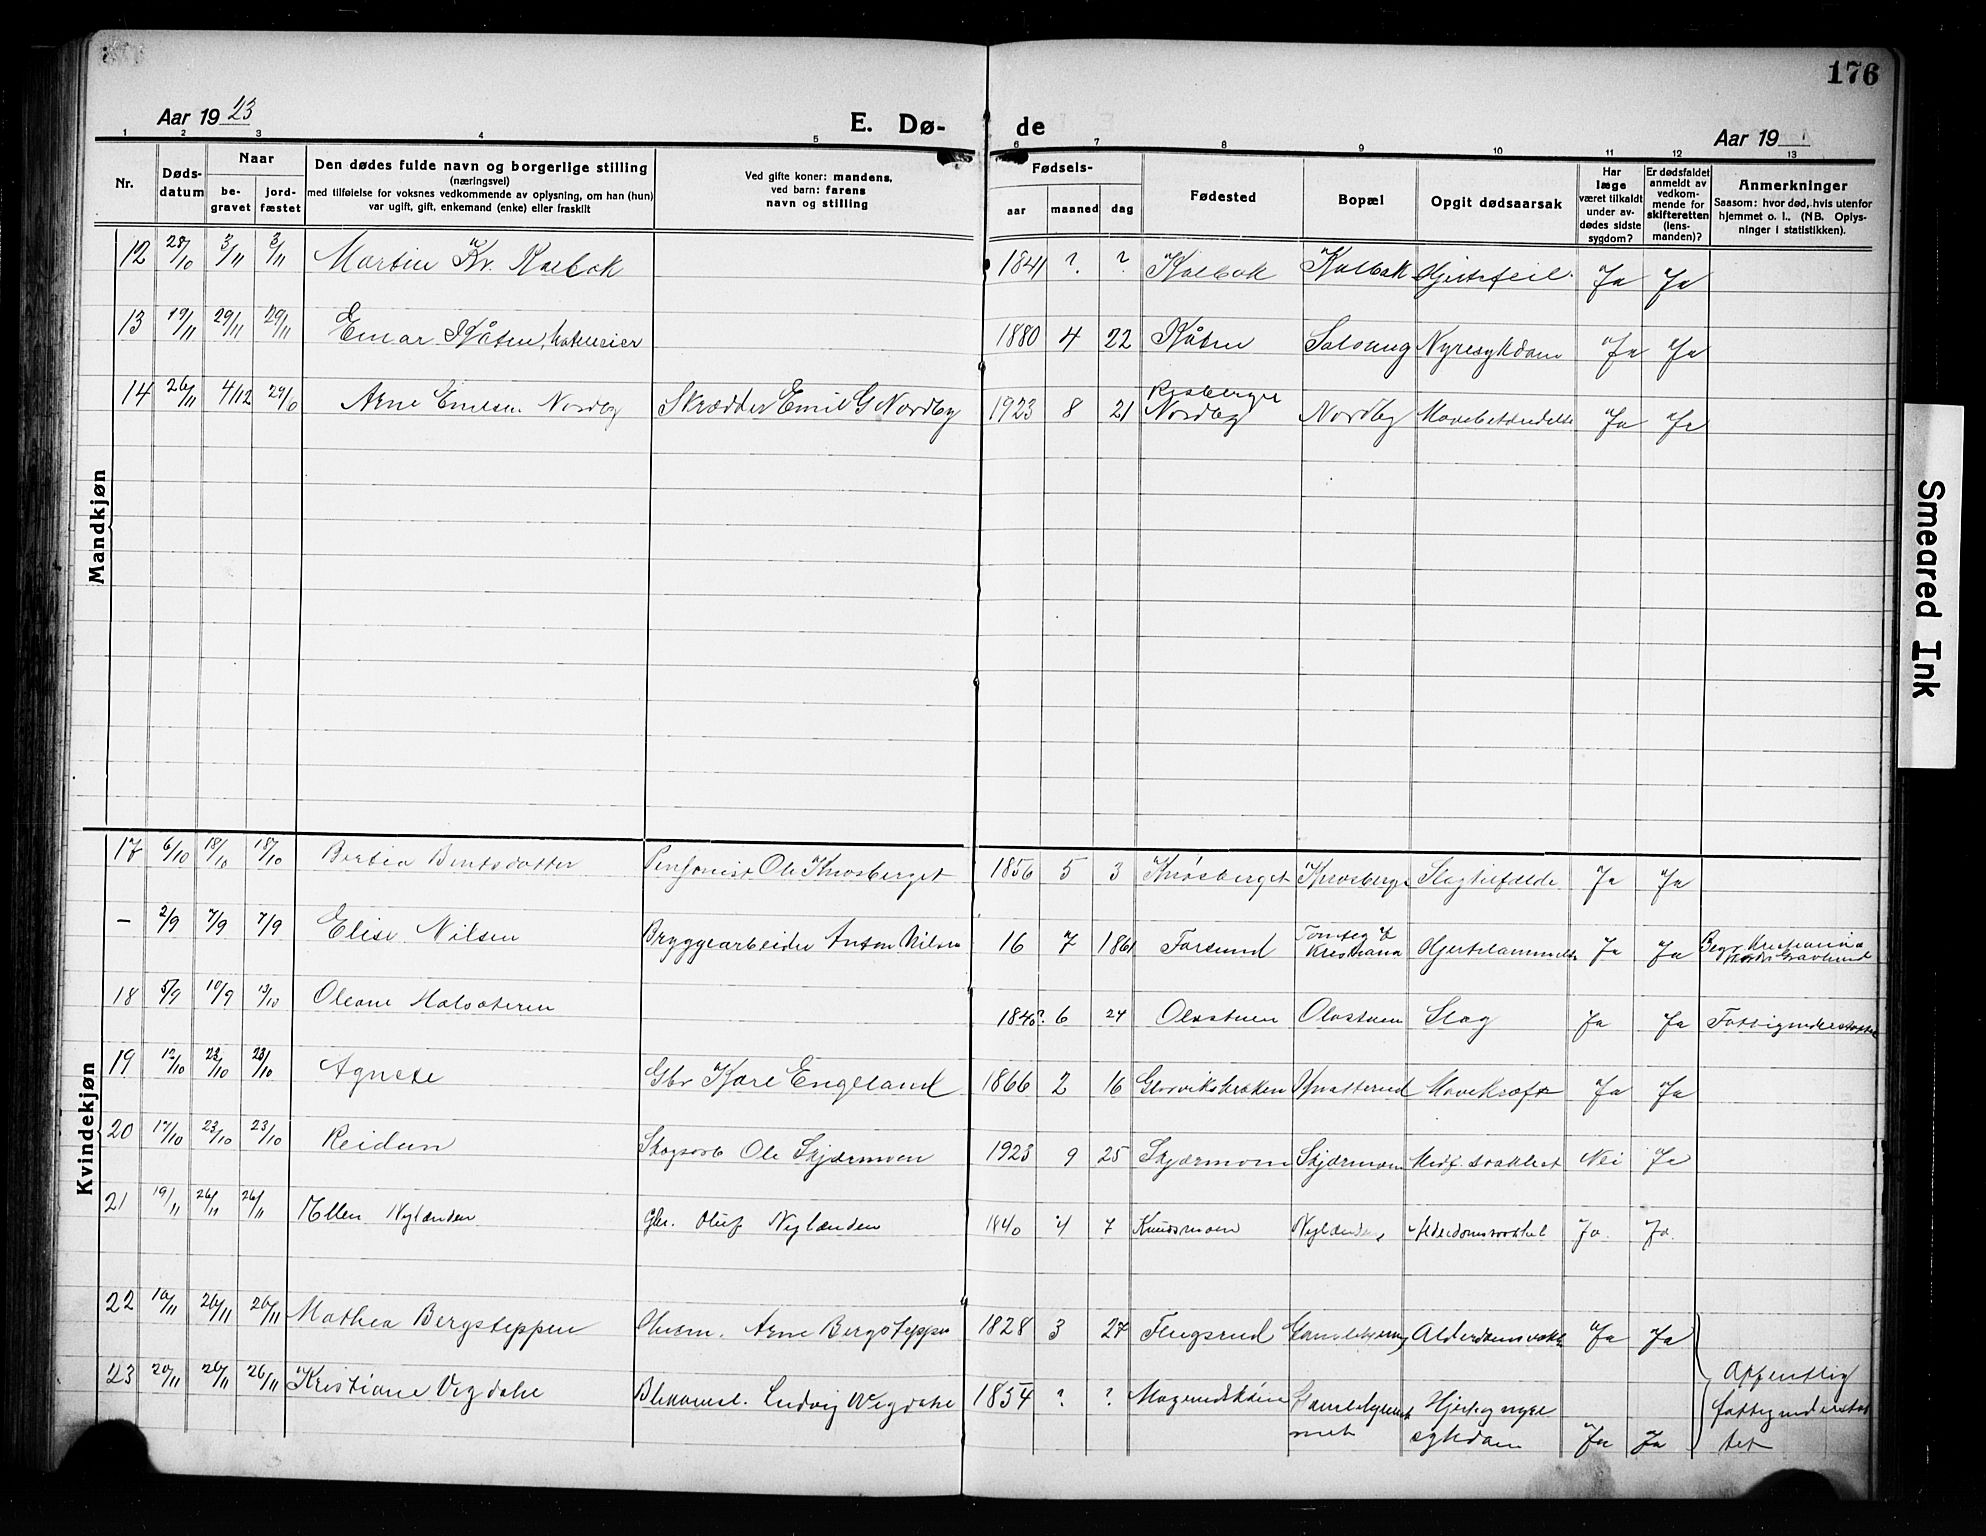 176
Aar 1923
E. Dø-
de
Aar 19
1 2 3 4 5 6 7 8 9 10 11 12 13
Nr.
Døds-
datum
Naar
be-
gravet
jord-
fæstet
Den dødes fulde navn og borgerlige stilling
(næringsvei)
med tilføielse for voksnes vedkommende av oplysning, om han (hun)
var ugift, gift, enkemand (enke) eller fraskilt
Ved gifte koner: mandens,
ved barn: farens
navn og stilling
Fødsels-
aar
maaned
dag
Fødested
Bopæl
Opgit dødsaarsak
Har
læge
været tilkaldt
under av-
dødes sidste
sygdom?
Er dødsfaldet
anmeldt av
vedkom-
mende for
skifteretten
(lens-
manden)?
Anmerkninger
Saasom: hvor død, hvis utenfor
hjemmet o. l., (NB. Oplys-
ninger i statistikken).
Mandkjøn
12 28/10 3/11 3/11 Martin Kr. Kalbak 1841 ? ? Kalbak Kalbak Hjertefeil Ja Ja
13 19/11 29/11 29/11 Einar Kåten, 1880 4 22 Kåten Solvang Nyresykdom Ja Ja
14 26/11 4/12 Arne Emilsen Nordby Skrædder Emil G Nordby 1923 8 21 Nordby Nordby Mavebetændelse Ja Ja
Kvindekjøn
17 6/10 18/10 18/10 Bertea Berntsdatter Pensjonist Ole Knosberget 1856 5 3 Knosberget Knosberget Slagtilfælde Ja Ja
— 2/9 7/9 7/9 Elise Nilsen Bryggearbeider Anton Nilsen 16 7 1861 Farsund Kristiania Hjertelammelse Ja Ja Begr. Kristiania
Nordre Gravlund
18 5/9 10/9 Oleane 1840? 6 24 Olastuen Olastuen Slag Ja Ja Fattigunderstøttet
19 12/10 23/10 23/10 Agnete Gbr Kare Engeland 1866 2 16 Knatterud Mavekræft Ja Ja
20 17/10 23/10 23/10 Reidun Skogsarb Ole Skjærmoen 1923 9 25 Skjærmoen Skjærmoen Medf. svakhet Nei Ja
21 19/11 26/11 26/11 Ellen Nylænden Gbr. Oluf Nylænden 1840 4 7 Knudsmoen Nylænden Alderdomssvakhet Ja Ja
22 16/11 26/11 26/11 Mathea Bergsteppen Arne Bergsteppen 1828 3 27 Flugsrud Gamlehjemmet Alderdomssvakh Ja Ja
23 20/11 26/11 26/11 Kristiane Vegdahl Blikkensl. Ludvig Wegdahl 1854 ? ? Gamlehjem
met Hjerte og nyre
sykdom Ja Ja
Offentlig
fattigunderstøt
tet
Smeared Ink